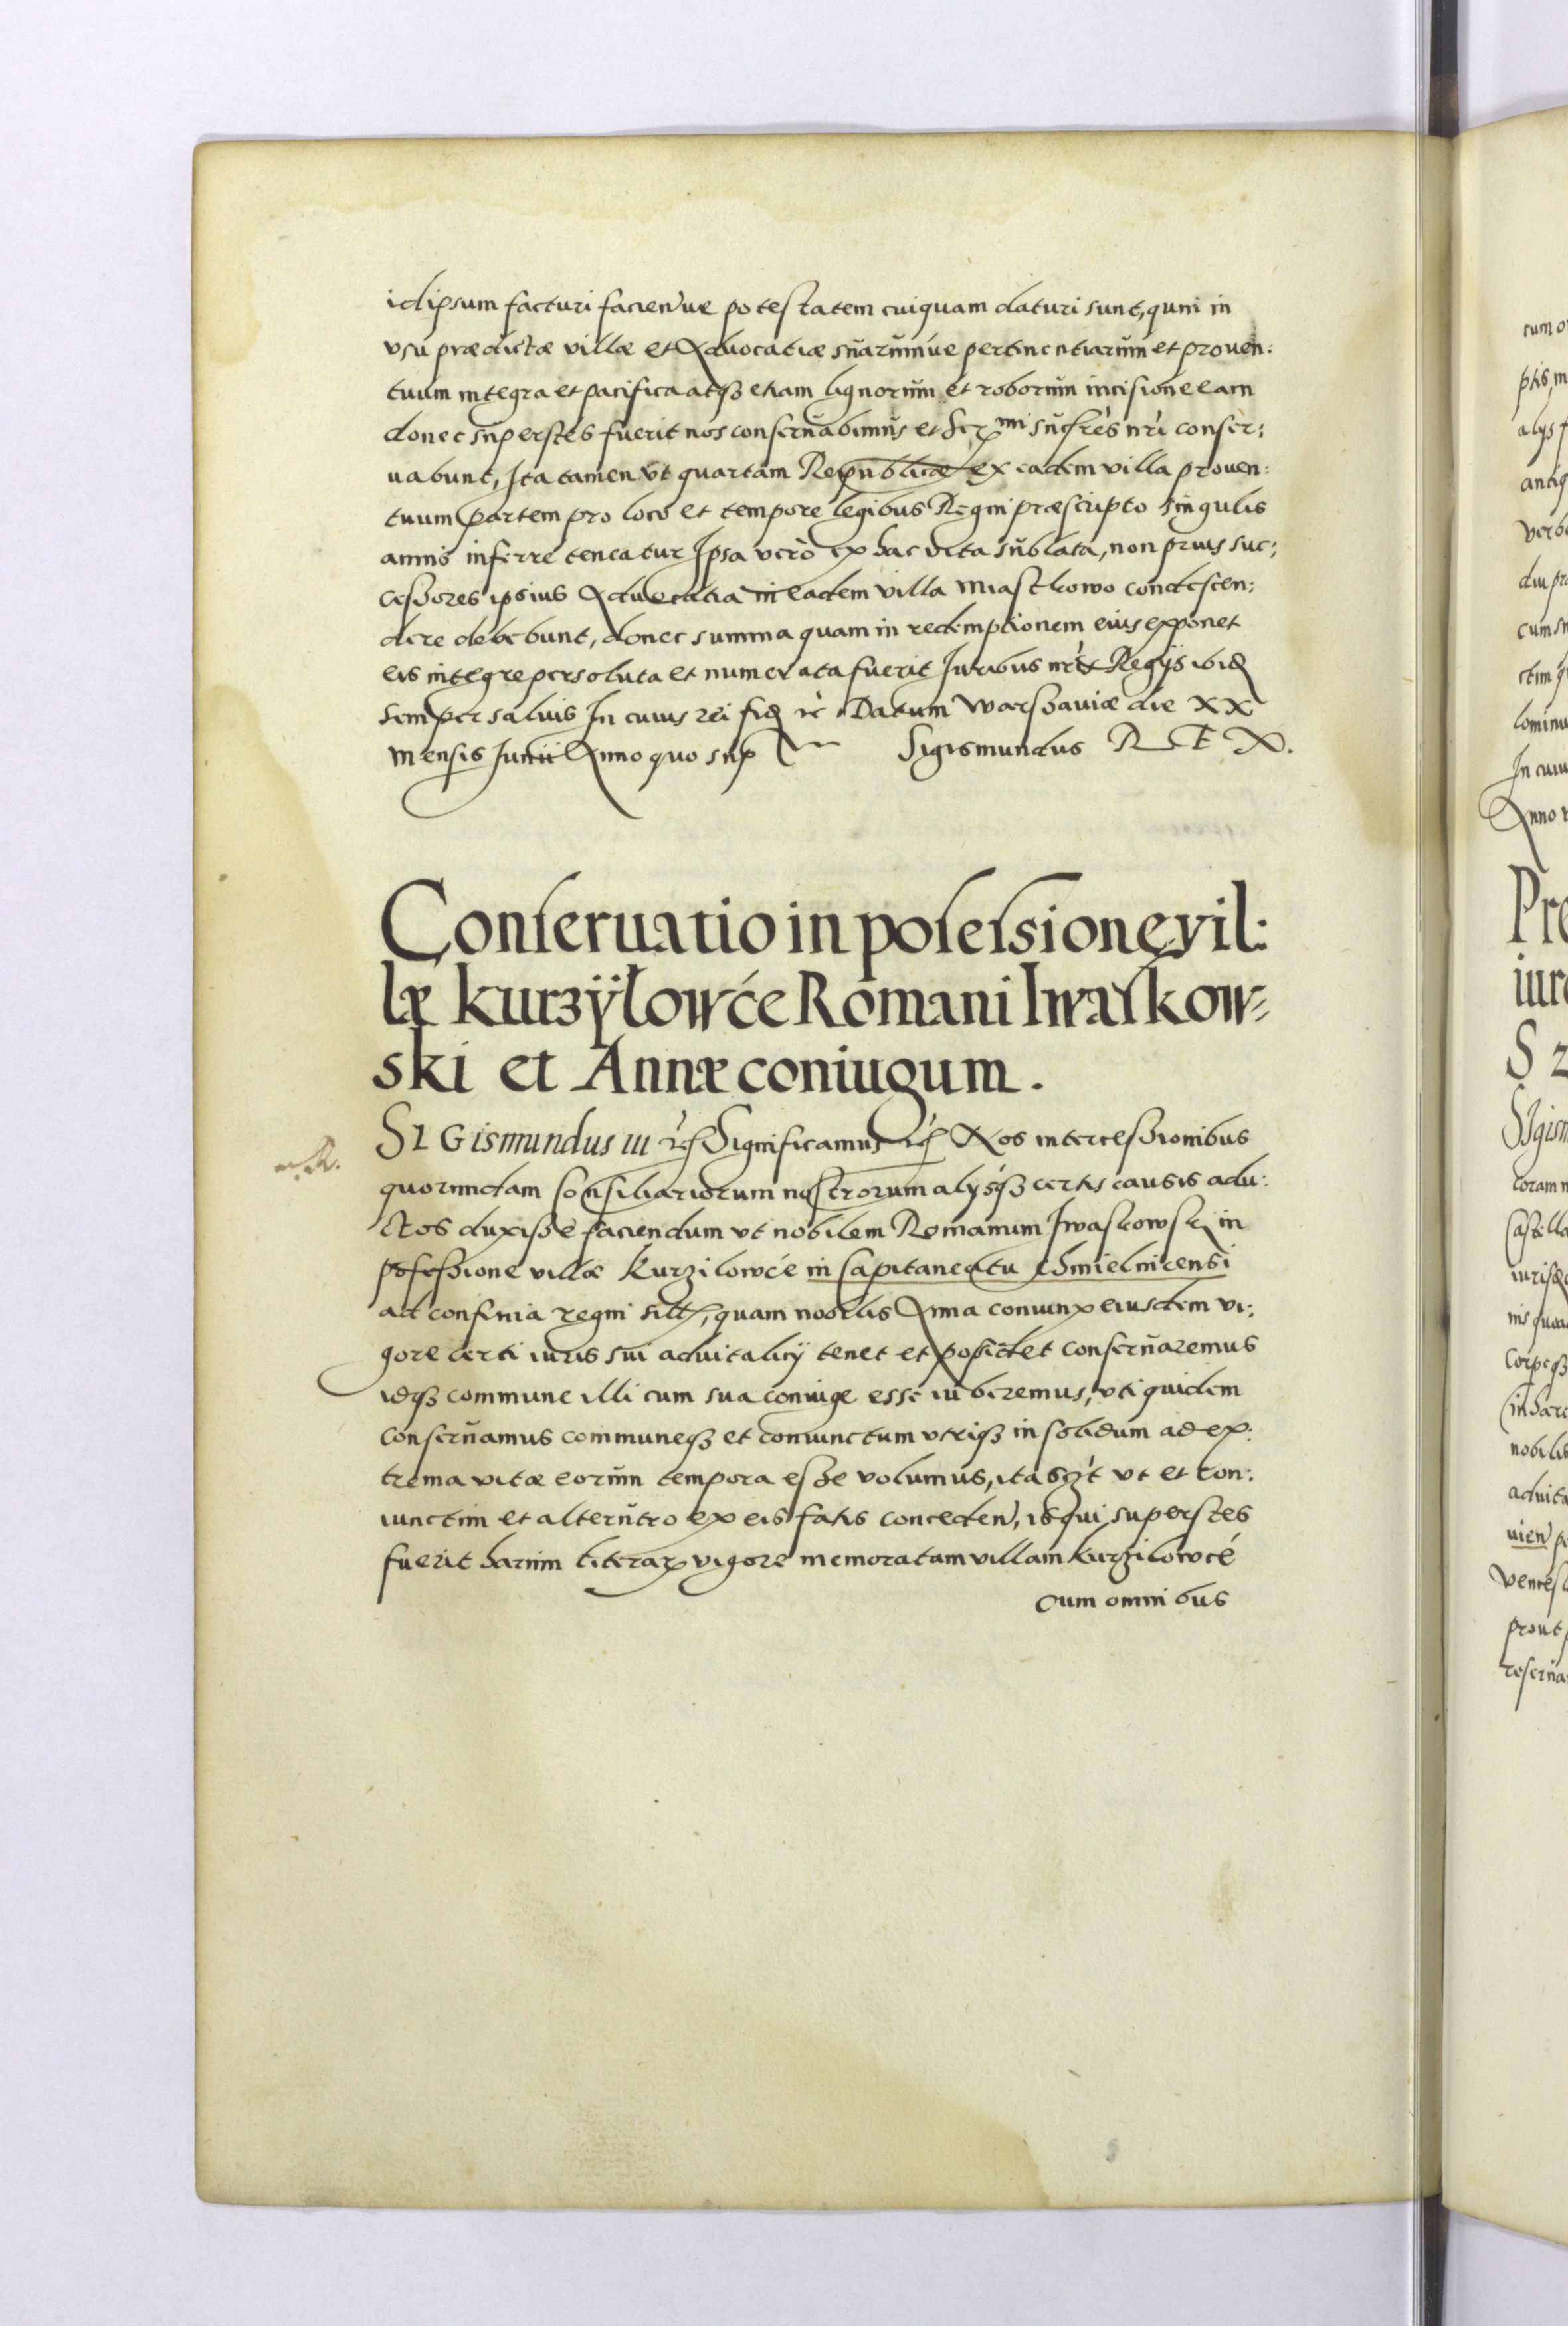 idipsum facturi facien'ue potestatem cuiquam daturi sunt, quin in
vsu prædictæ villæ et Aduocatiæ suarumue pertinentiarum et prouen:
tuum integra et pacifica atq3 etiam lignorum et roborum incisione eam
donec superstes fuerit nos conseruabimus et Ser^mi suc̃res nr̃i conser:
uabunt, Ita tamen vt quartam Republicæ ex eadem villa prouen:
tuum partem pro loco et tempore legibus Regni præscripto singulis
annis inferre teneatur Ipsa verò ex hac vita sublata, non prius suc:
cessores ipsius Aduocatia in eadem villa Miastkowo condescen:
dere debebunt, donec summa quam in redemptionem eius exponet
eis integre persoluta et numerata fuerit Iuribus nr̃is Regÿs ibid
semper saluis In cuius rei fid rc̀ Datum Warssauiæ die XX
mensis Iunii Anno quo sup Sigismundus REX.
Conseruatio in possessione vil:
læ Kurzÿlowće Romani Iwaskow=
ski et Annæ coniugum.
SIGismundus III Significamus Nos intercessionibus
quorundam Consiliariorum nostrorum alysq3 certis causis addu:
ctos duxisse faciendum vt nobilem Romanum Iwaskowski in
possessione villæ Kurzilowće in Capitaneatu Chmielnicensi
ad confinia regni sitt, quam nobilis Anna coniunx eiusdem vi:
gore certi iuris sui aduitalicÿ tenet et possidet conseruaremus
idq3 commune illi cum sua coniuge esse iuberemus, vti quidem
conseruamus communeq3 et coniunctum vtriq3 in solidum ad ex:
trema vitæ eorum tempora esse volumus, ita vt et con:
iunctim et alterutro ex eis fatis conceden', is qui superstes
fuerit harum literar vigore memoratam villam Kurzilowcé
cum omnibus